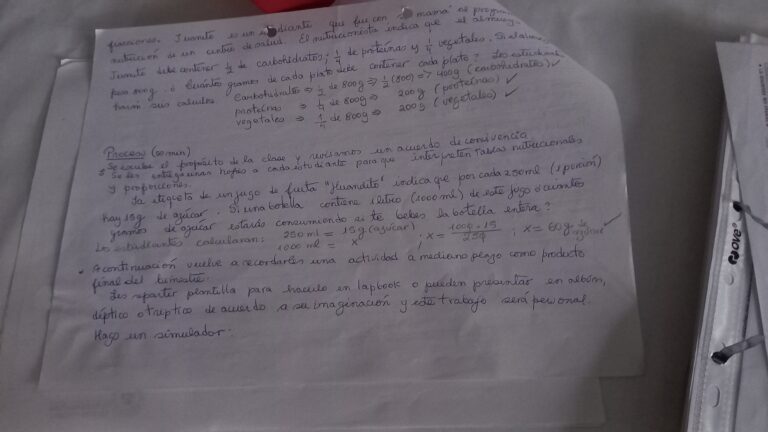 fracciones. Juanito es un estudiante que fue con su mamá al programa
nutrición de un centro de salud. El nutricionista indica que el almuerzo
Juanito debe contener 1/2 de carbohidratos, 1/4 de proteínas y 1/4 vegetales. Si el almuerzo
pesa 800g. ¿Cuántos gramos de cada plato debe contener cada plato? Los estudiantes
harán sus cálculos. Carbohidratos ⇒ 1/2 de 800g ⇒ 1/2 (800) ⇒ 400g (carbohidratos) ✓
proteínas ⇒ 1/4 de 800g ⇒ 200g (proteínas) ✓
vegetales ⇒ 1/4 de 800g ⇒ 200g (vegetales) ✓
Proceso (60 min)
Se escribe el propósito de la clase y revisamos un acuerdo de convivencia
Se les entrega unas hojas a cada estudiante para que interpreten Tablas nutricionales
y proporciones.
La etiqueta de un jugo de fruta "Juandito" indica que por cada 250ml (1 porción)
hay 15g de azúcar. Si una botella contiene 1 litro (1000ml) de este jugo ¿cuántos
gramos de azúcar estarás consumiendo si te bebes la botella entera?
Los estudiantes calcularan: 250ml = 15g (azúcar) ; x = 1000·15/250 ; x = 60g de azúcar ✓
1000ml = x
• A continuación vuelve a recordarles una actividad a mediano plazo como producto
final del bimestre:
Les repartir plantilla para hacerlo en lapbook o pueden presentar en álbum,
díptico o tríptico de acuerdo a su imaginación y este trabajo será personal.
Hago un simulador:
ove